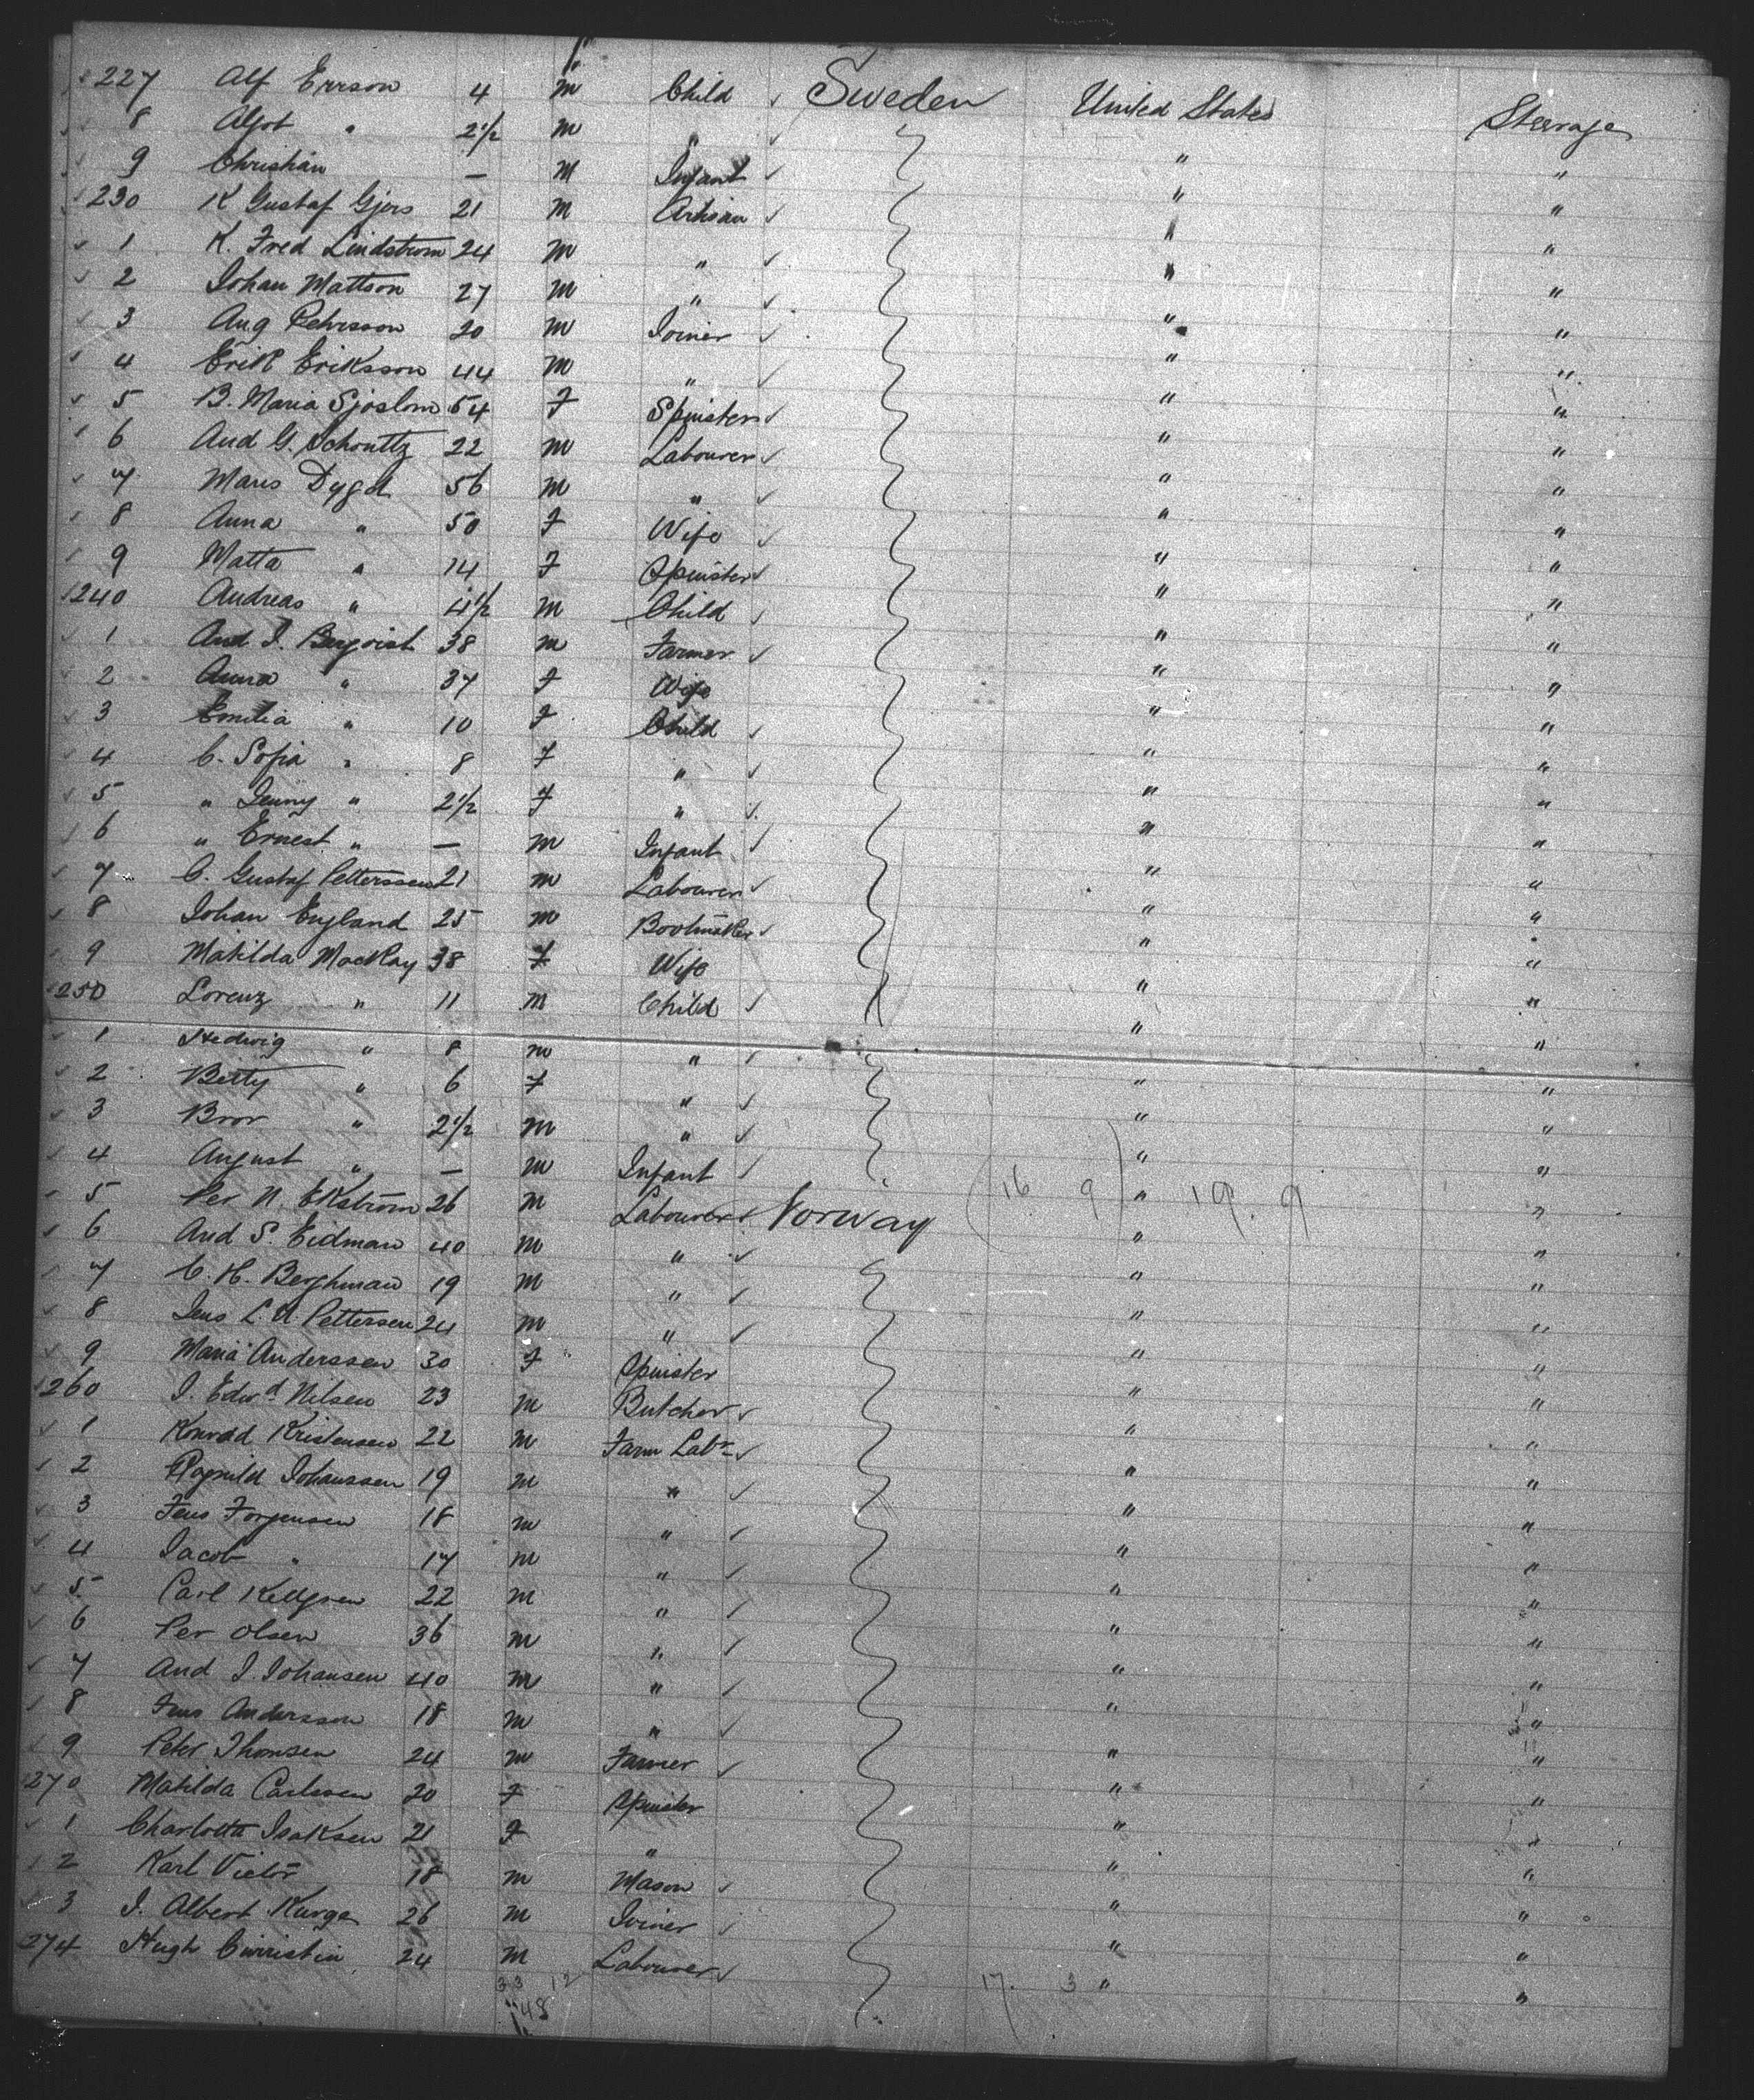 227 Alf Ersson 4 m Child Sweden United States Steerage
8 Algot " 2½ m " " "
9 Christian — m Infant " "
230 K Gustaf Gjers 21 m Artisan " "
1 K. Fred Lindstrom 24 m " " "
2 Johan Mattson 27 m " " "
3 Aug Pehrsson 20 m Joiner " "
4 Erik Eriksson 44 m " " "
5 B. Maria 54 F Spinster " "
6 And G. Schonttz 22 m Labourer " "
7 Mans Dygd 56 m " " "
8 Anna " 50 F Wife " "
9 Matta " 14 F Spinster " "
1240 Andreas " 4½ m Child " "
1 And J. Bergvist 38 m Farmer " "
2 Anna " 37 F Wife " "
3 Emilia " 10 F Child " "
4 C. Sofia " 8 F " " "
5 " Jenny " 2½ F " " "
6 " Ernest " — m Infant " "
7 C. Gustaf Petterssen 21 m Labourer " "
8 Johan England 25 m Bootmaker " "
9 Matilda MacKay 38 F Wife " "
1250 Lorenz " 11 m Child " "
1 Hedwig " 8 m " " "
2 Betty " 6 F " " "
3 Bror " 2½ m " " "
4 August " — m Infant " "
5 Per N. Ekström 26 m Labourer Norway (16 9) " 19. 9 "
6 And S. Eidman 40 m " " "
7 C. H. Berghman 19 m " " "
8 Jens L. A. Pettersen 24 m " " "
9 Maria Anderssen 30 F Spinster " "
1260 J. Edwd Nilsen 23 m Butcher " "
1 Konrad Kristensen 22 m Farm Labr " "
2 Ragnild Johanssen 19 m " " "
3 Jens Jorgensen 18 m " " "
4 Jacob " 17 m " " "
5 Carl Kellgren 22 m " " "
6 Per Olsen 36 m " " "
7 And J. Johansen 40 m " " "
8 Jens Andersson 18 m " " "
9 Peter Thomsen 24 m Farmer " "
270 Matilda Carlssen 20 F Spinster " "
1 Charlotta Isaksen 21 F " " "
2 Karl Victor 18 m Mason " "
3 J. Albert Kurge 26 m Joiner " "
274 Hugh 24 m Labourer " "
33 12 17. 3
48